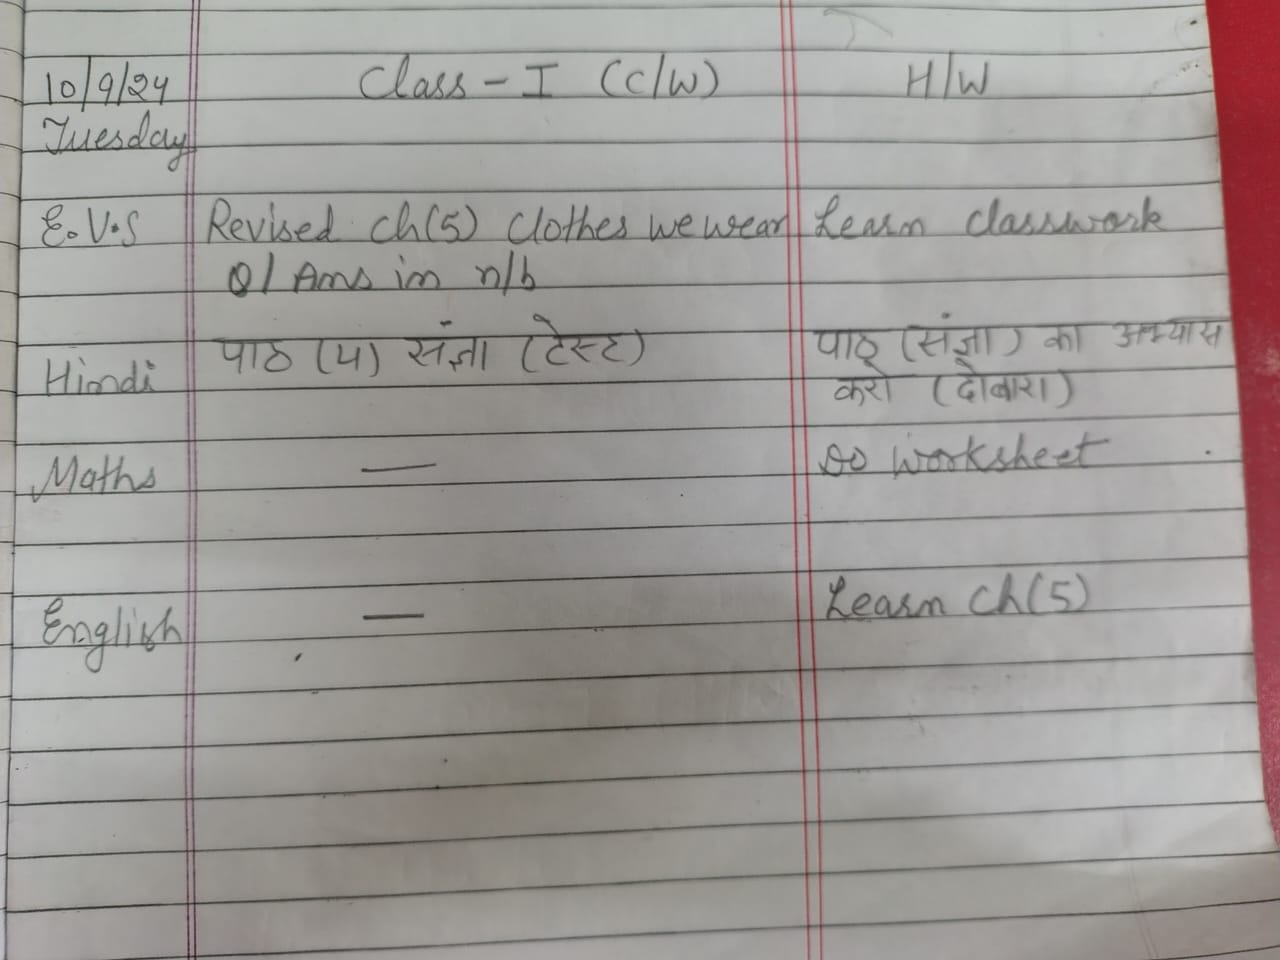 10/9/24 Class - I (C/W) H/W
Tuesday
E.V.S Revised ch(5) Clothes we wear Learn classwork
Q/Ans in n/b
Hindi पाठ (५) संज्ञा (टेस्ट) पाठ (संज्ञा) का अभ्यास
करो (दोबारा)
Maths — Do worksheet
English — Learn Ch(5)